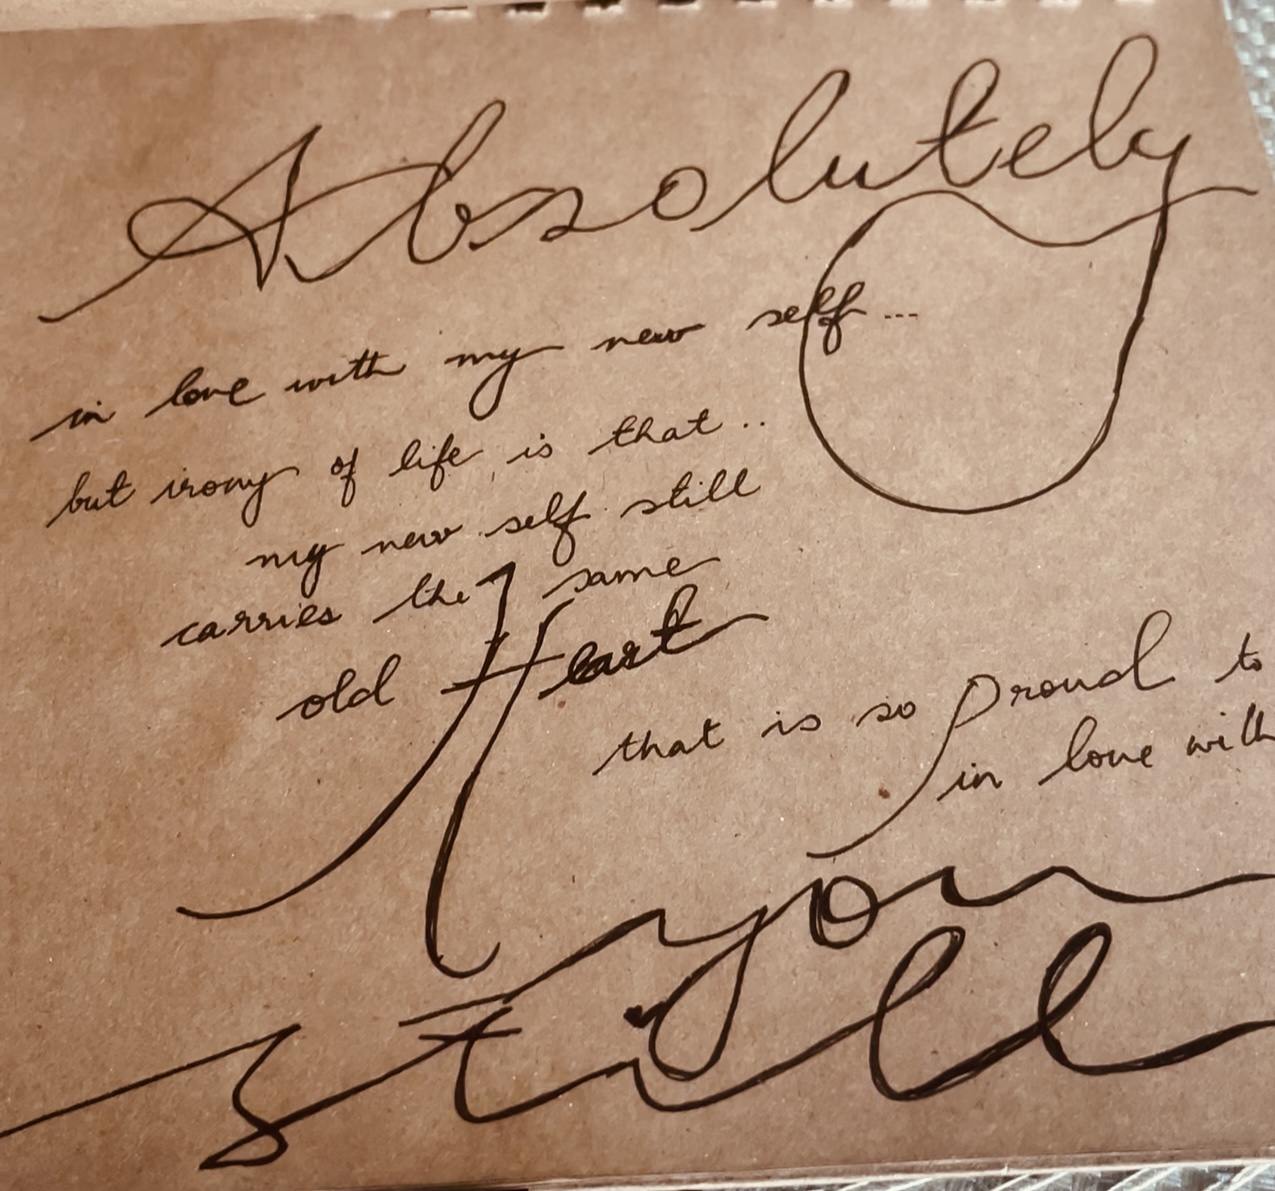 Absolutely
in love with my new self...
but irony of life is that..
my new self still
carries the same
old Heart
that is so proud to
in love with
you
still